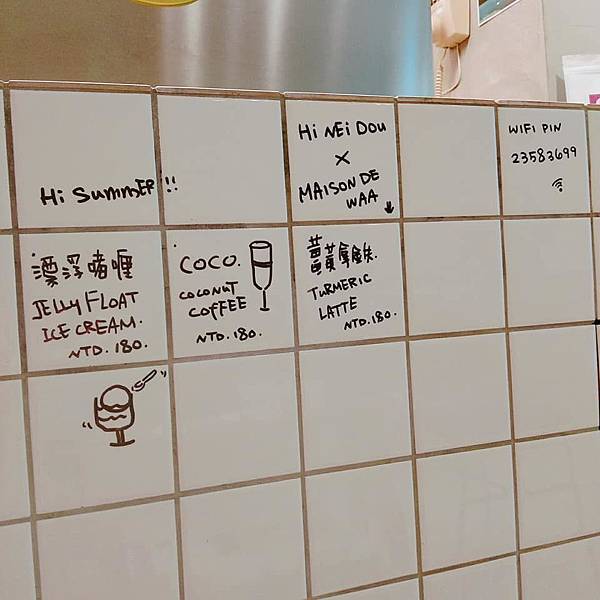 Hi SummER !!
Hi NEi DOU
×
MAISON DE
WAA
WIFI PIN
23583699
漂浮啫喱
JELLY FLOAT
ICE CREAM.
NTD. 180.
COCO.
COCONUT
COFFEE
NTD. 180.
薑黃拿鐵.
TURMERIC
LATTE
NTD. 180.